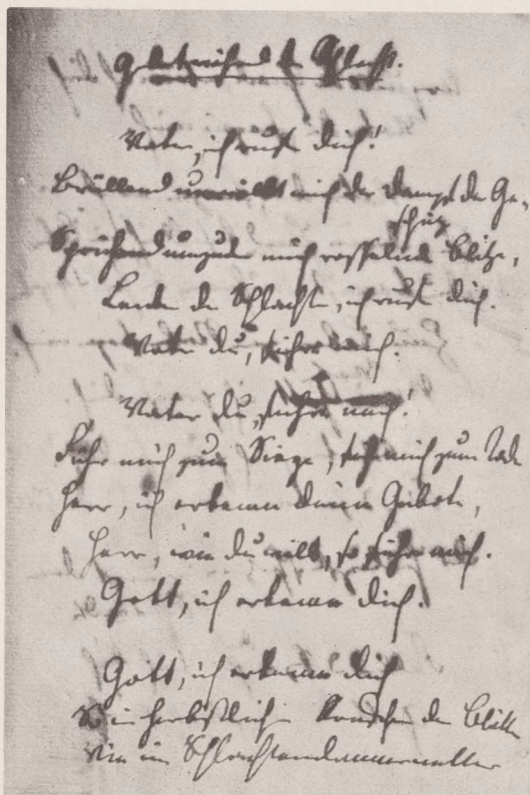 Gebet während der Schlacht.
Vater, ich rufe dich!
Brüllend umwölkt mich der Dampf der Ge-
schütze,
Sprühend umzucken mich rasselnde Blitze,
Lenker der Schlachten, ich rufe dich.
Vater du, führe mich.
Vater du, führe mich!
Führ mich zum Siege, führ mich zum Tode
Herr, ich erkenne deine Gebote,
Herr, wie du willst, so führe mich.
Gott, ich erkenne dich.
Gott, ich erkenne dich
So im herbstlichen Rauschen der Blätter
Wie im Schlachtendonnerwetter